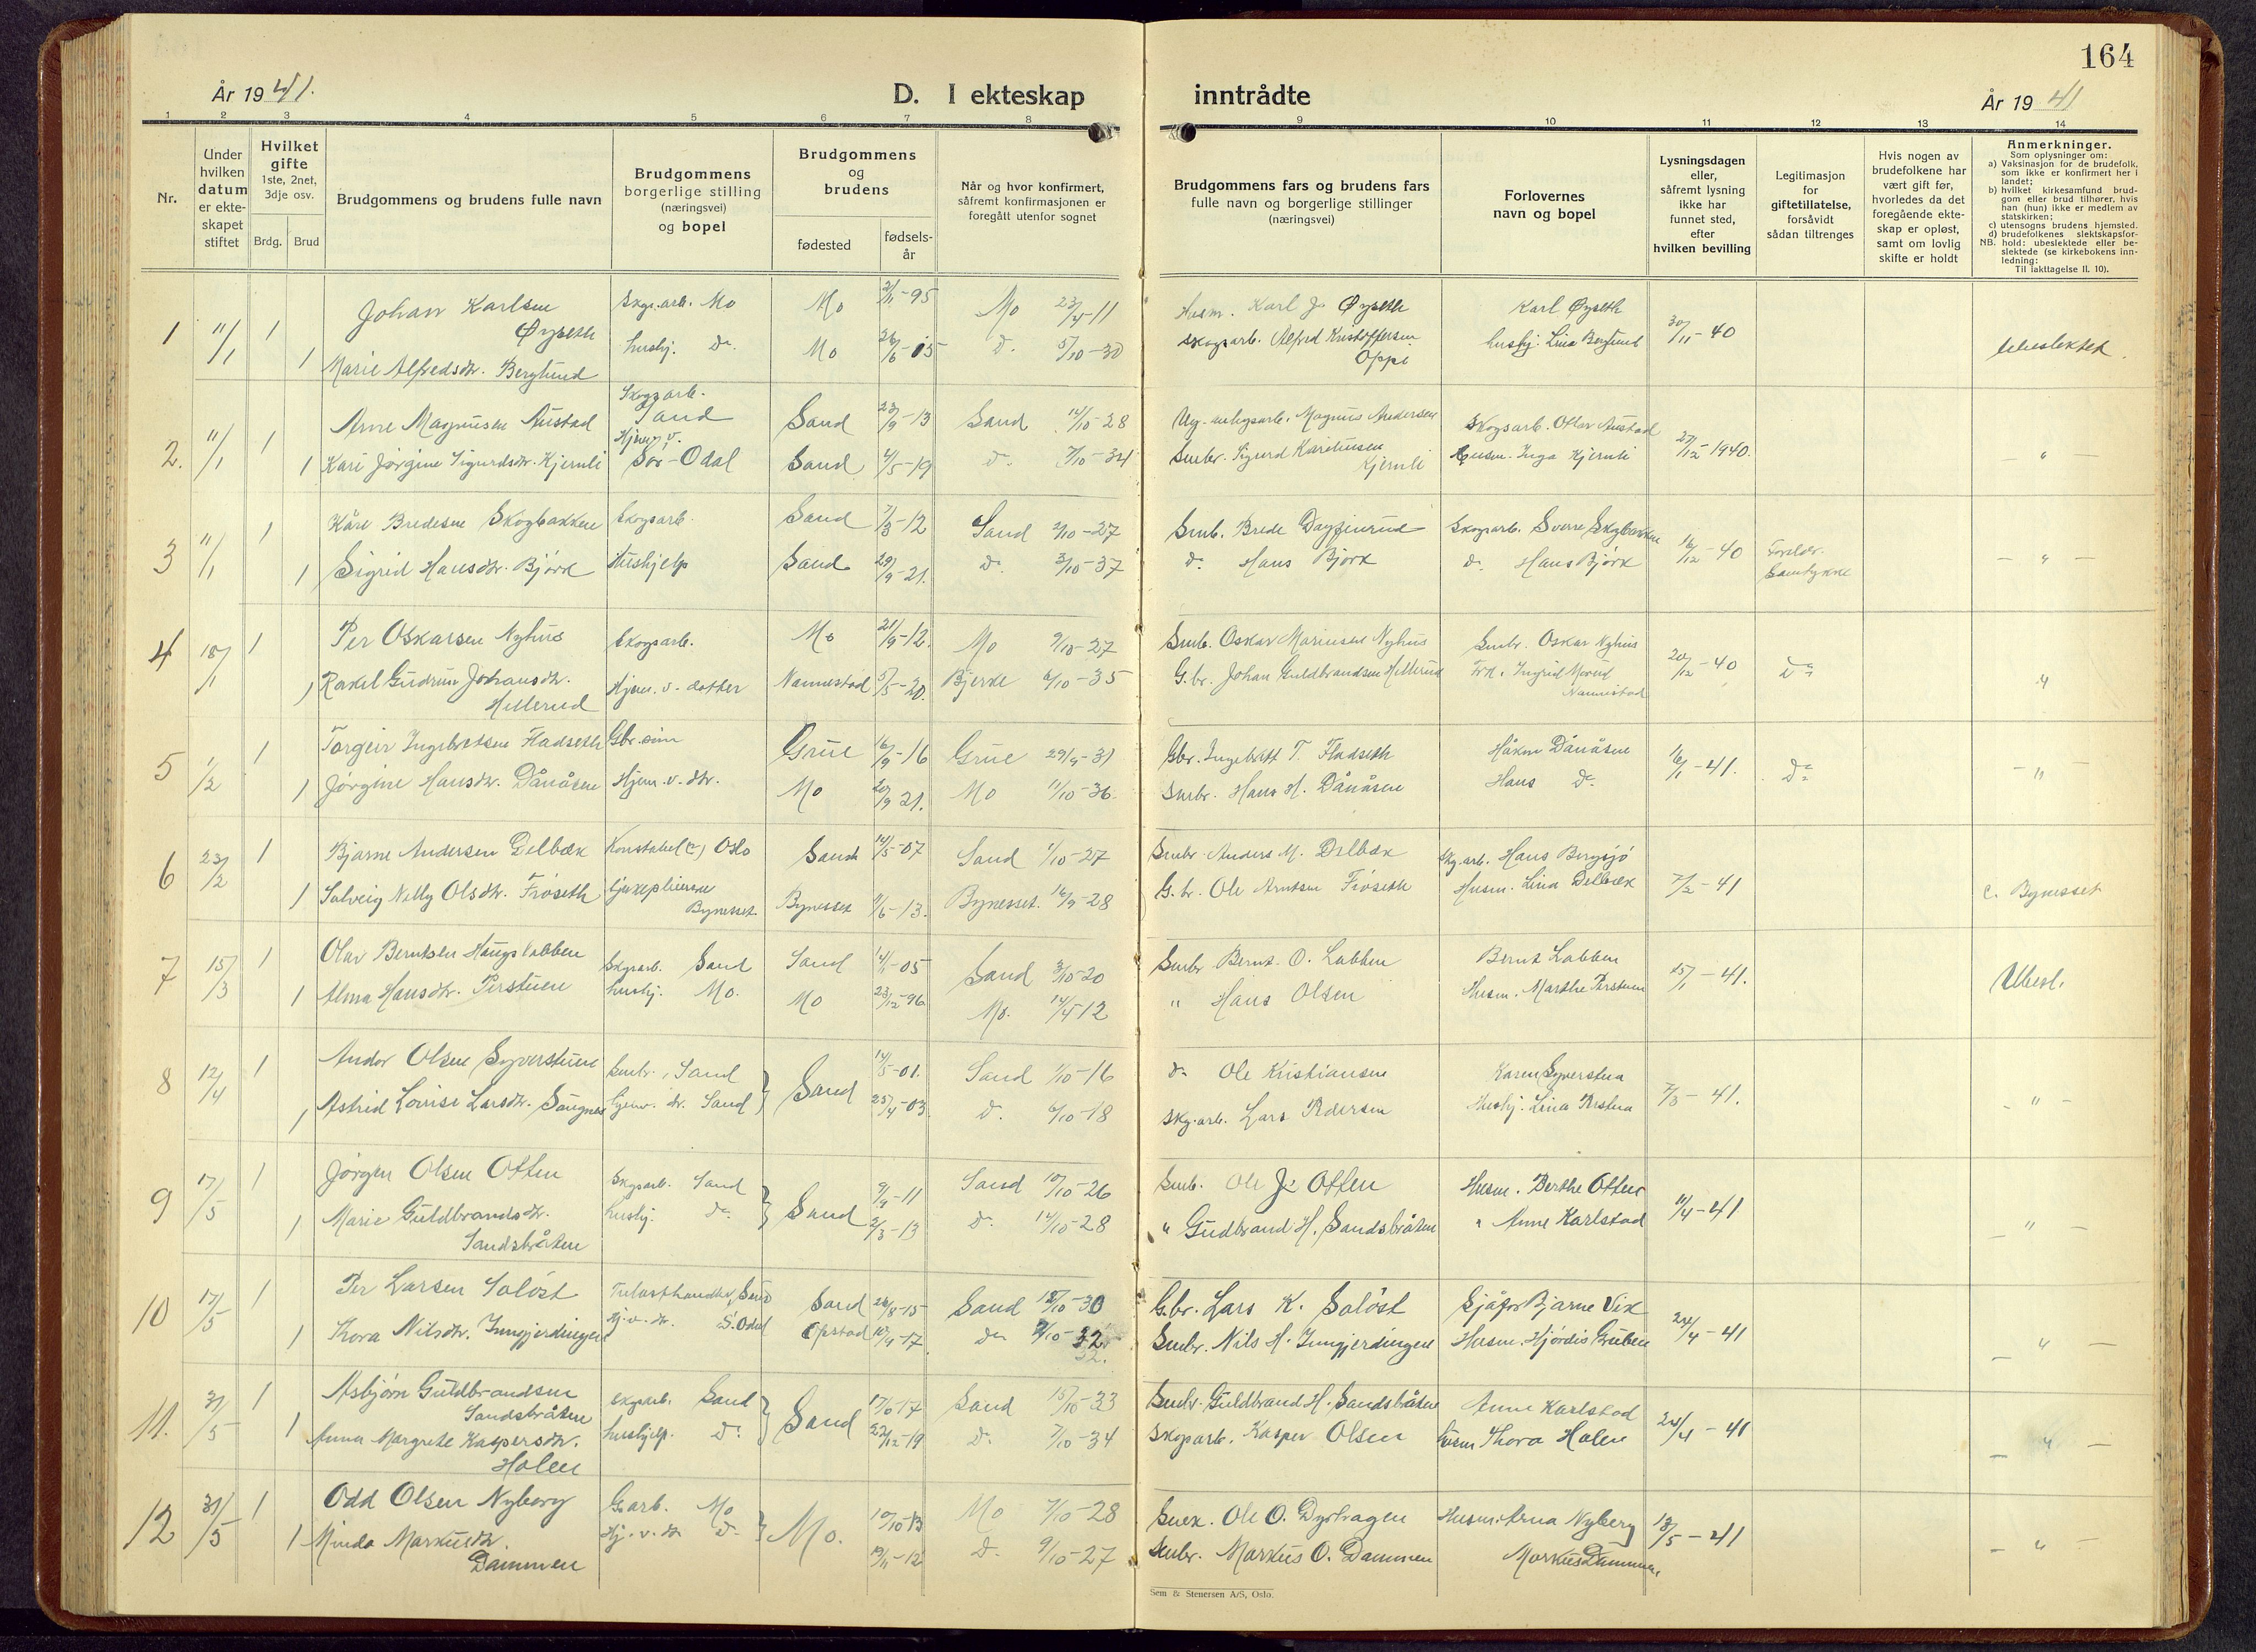 164
År 1941.
D. I ekteskap inntrådte
År 1941
1 2 3 4 5 6 7 8 9 10 11 12 13 14
Nr.
Under hvilken datum er ekteskapet stiftet
Hvilket gifte
1ste, 2net, 3dje osv.
Brdg. Brud
Brudgommens og brudens fulle navn
Brudgommens borgerlige stilling (næringsvei) og bopel
Brudgommens og brudens
fødested
fødsels-år
Når og hvor konfirmert, såfremt konfirmasjonen er foregått utenfor sognet
Brudgommens fars og brudens fars fulle navn og borgerlige stillinger (næringsvei)
Forlovernes navn og bopel
Lysningsdagen eller, såfremt lysning ikke har funnet sted, efter hvilken bevilling
Legitimasjon for giftetillatelse, forsåvidt sådan tiltrenges
Hvis nogen av brudefolkene har vært gift før, hvorledes da det foregående ekteskap er opløst, samt om lovlig skifte er holdt
Anmerkninger.
Som oplysninger om:
a) Vaksinasjon for de brudefolk, som ikke er konfirmert her i landet;
b) hvilket kirkesamfund brudgom eller brud tilhører, hvis han (hun) ikke er medlem av statskirken;
c) utensogns brudens hjemsted.
d) brudefolkenes slektskapsforhold: ubeslektede eller beslektede (se kirkebokens innledning:
NB.
Til iakttagelse II. 10).
1 11/1 1 Johan Karlsen Øyseth Skgs.arb. Mo Mo 21/11-95 Mo 23/4-11 Husm. Karl J. Øyseth Karl Øyseth 30/11-40 Ubeslektet.
1 Marie Alfredsdtr. Berglund hushj. do. Mo 26/6-05 d. 5/10-30 Skogsarb. Alfred Kristoffersen Oppi hushj. Lina Berglund
2. 11/1 1 Arne Magnusen Austad Skogsarb. Sand Sand 23/9-13 Sand 14/10-28 Magnus Andersen Skogsarb. Olav Austad 27/12-1940. - " -
1 Kari Jørgine Sigurdsdtr. Kjernli Hjem. v. Sør-Odal Sand 4/5-19 d. 7/10-34 Smbr. Sigurd Karelinsen Kjernli Husm. Inga Kjernli
3 11/1 1 Kåre Bredesen Skogbakken Skogsarb. Sand 7/3-12 Sand 2/10-27 Smb. Brede Dagfinrud Skogsarb. Sverre Skogbakken 16/12-40 Foreldr. Samtykke - " -
1 Sigrid Hansdtr. Bjørk Hushjelp Sand 29/9-21. d. 3/10-37 d. Hans Bjørk d. Hans Bjørk
4 18/1 1 Per Oskarsen Nyhus Skogsarb. Mo 21/9-12. Mo 9/10-27 Smb. Oskar Mariusen Nyhus Smbr. Oskar Nyhus 20/12-40 do "
1 Rakel Gudrun Johansdtr. Hellerud Hjem. v. datter Nannestad 5/5-20. Bjerke 6/10-35 G.br. Johan Guldbrandsen Hellerud Frk. Ingrid Morud Nannestad
5 1/2 1 Torgeir Ingebretsen Fladseth Gbr. sønn Grue 16/9-16 Grue 29/9-31 Gbr. Ingebrett T. Fladseth Håkon Dånåsen 16/1-41. do - " -
1 Jørgine Hansdtr. Dånåsen Hjem. v. dtr. Mo 20/9 21. Mo 11/10-36. Smbr. Hans H. Dånåsen Hans do
6 23/2 1 Bjarne Andersen Delbæk Konstabel Oslo Sand 14/5-07 Sand 1/10-27 Smbr. Anders M. Delbæk Skg.arb. Hans Bergsjø 7/2-41 c. Bynesset
1 Solveig Nelly Olsdtr. Frøseth Bynesset Bynesset 11/6-13. Bynesset. 16/9-28 G.br. Ole Arntsen Frøseth Husm. Lina Delbæk
7 15/3 1 Olav Berntsen Haugslabben Skgsarb. Sand Sand 14/1-05 Sand 3/10-20 Smbr. Bernt O. Labben Bernt Labben 15/1-41. Ubesl.
1 Alma Hansdtr. Perstuen hushj. Mo. Mo 23/12-96 Mo. 14/4-12 " Hans Olsen Husm. Marthe Perstuen
8 12/4 1 Andor Olsen Syverstuen Smbr. Sand Sand 14/5-01. Sand 1/10-16 do Ole Kristiansen Karen Syverstua 7/3-41. - " -
1 Astrid Lovise Larsdtr. Saugnes hjemv. dr. Sand 25/4-03 d. 6/10-18 Skg.arb. Lars Pedersen Hushj. Lina Perstua
9 17/5 1 Jørgen Olsen Offen Skgsarb. Sand Sand 9/9-11 Sand 10/10-26 Smb. Ole J. Offen Husm. Berthe Offen 11/4-41 - " -
1 Marie Guldbrandsdtr. Sandsbråten hushj. do. 2/3-13 d. 14/10-28 " Gudbrand H. Sandsbråten " Anne Karlstad
10 17/5 1 Per Larsen Soløst Trelasthandler, Sand Sand 26/8-15 Sand 12/10-30 G.br. Lars K. Soløst Sjåfør Bjarne Vix 24/4-41 - " -
1 Thora Nilsdtr. Inngjerdingen Hj. v. dr. S. Odal Opstad 10/9-17. do 2/10-32 32. Smbr. Nils H. Inngjerdingen Husm. Hjørdis Gruben
11. 31/5 1 Asbjørn Guldbrandsen Sandsbråten Skgsarb. Sand Sand 17/6-17 Sand 15/10-33 Smbr. Guldbrand H. Sandsbråten Anne Karlstad 24/4-41 - " -
1 Anna Margrete Kaspersdtr. Holen hushjelp. do. 22/12-19 d. 7/10-34 Skogsarb. Kasper Olsen Husm Thora Holen
12 31/5 1 Odd Olsen Nyberg G.arb. Mo Mo. 10/10-13 Mo 7/10-28 Ole O. Dyrhagen Husm. Arna Nyberg 13/5-41 - " -
1 Minda Markusdtr. Dammen Hj. v. dr. do 19/11-12 d. 9/10-27 Smbr. Markus O. Dammen Markus Dammen
Sem & Stenersen A/S, Oslo.